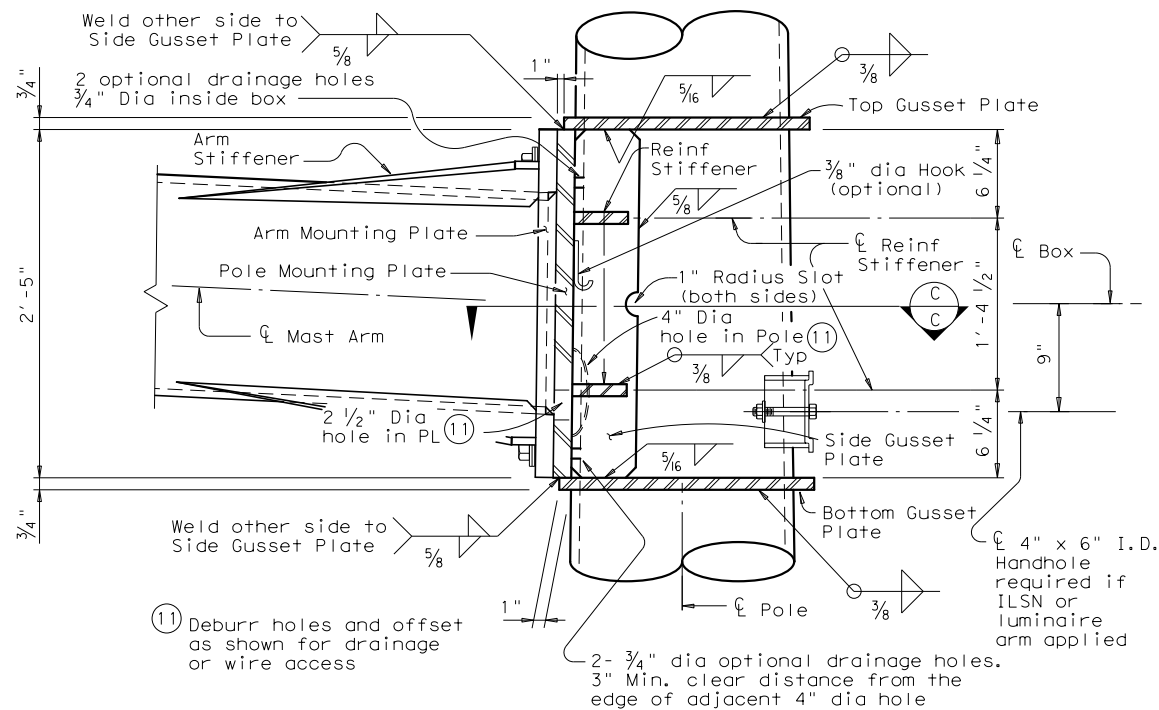 Weld other side to
Side Gusset Plate
5/8
1"
3/4"
2 optional drainage holes
3/4" Dia inside box
5/16
3/8
Top Gusset Plate
Arm
Stiffener
Reinf
Stiffener
3/8" dia Hook
(optional)
6 1/4"
5/8
Arm Mounting Plate
℄ Reinf
Stiffener
℄ Box
Pole Mounting Plate
1" Radius Slot
(both sides)
C
C
2'-5"
1'-4 1/2"
℄ Mast Arm
4" Dia
hole in Pole 11
Typ
3/8
9"
2 1/2" Dia
hole in PL 11
Side Gusset
Plate
5/16
6 1/4"
3/4"
Weld other side to
Side Gusset Plate
5/8
Bottom Gusset
Plate
℄ 4" x 6" I.D.
Handhole
required if
ILSN or
luminaire
arm applied
1"
℄ Pole
3/8
11 Deburr holes and offset
as shown for drainage
or wire access
2- 3/4" dia optional drainage holes.
3" Min. clear distance from the
edge of adjacent 4" dia hole